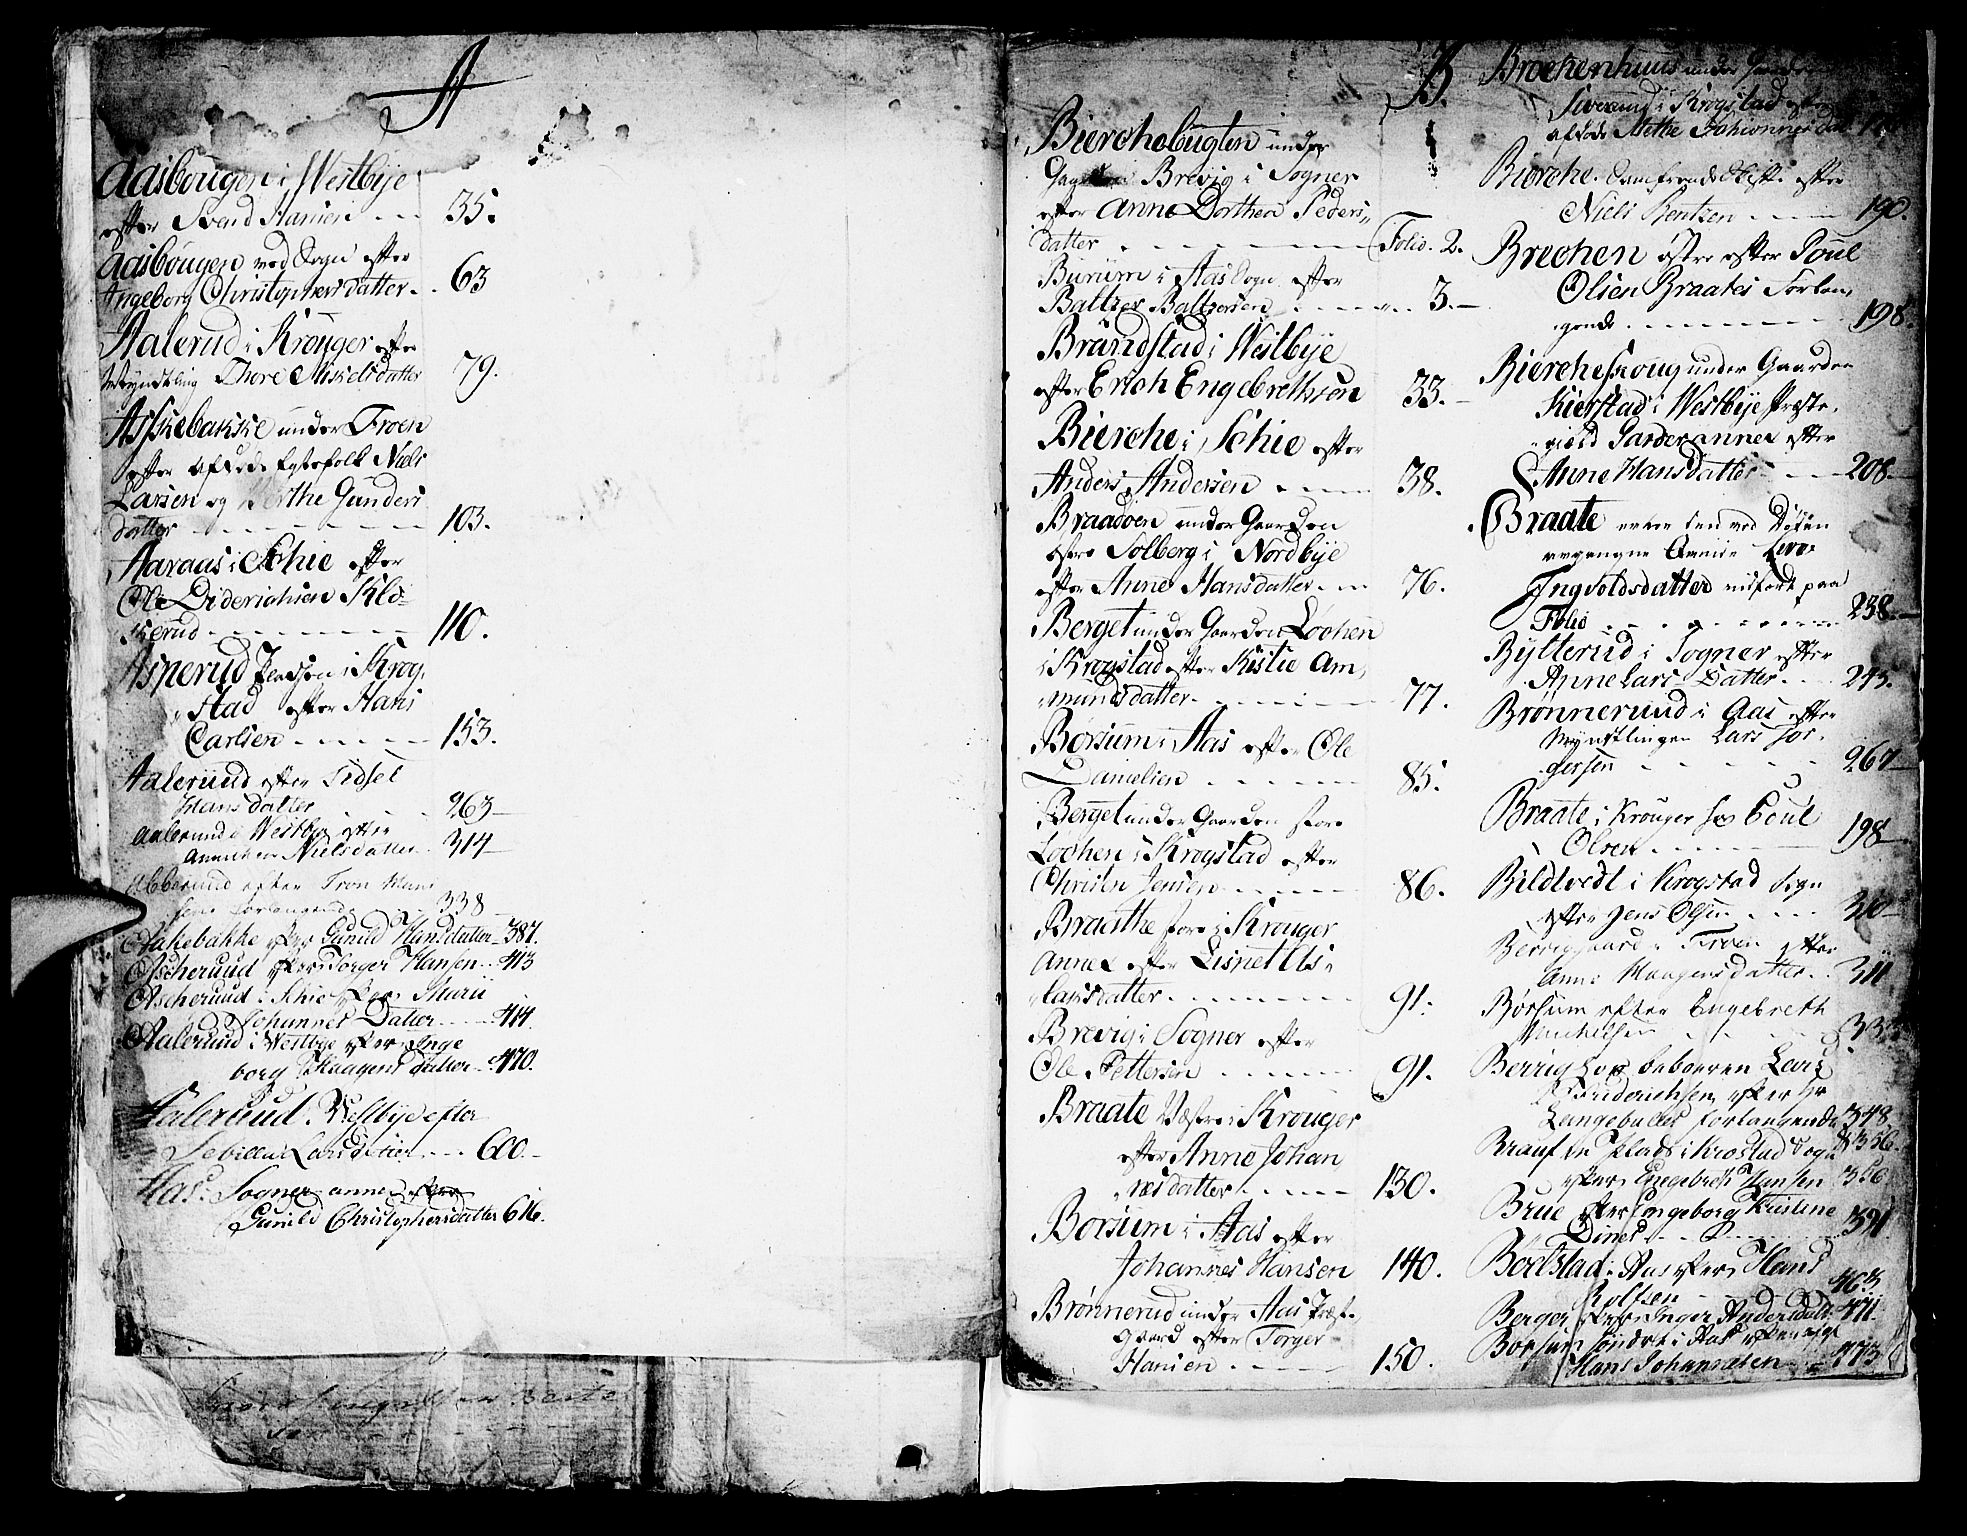 A
Aasbougen i Westbye
efter Svend Hansen - - - 35.
Aasbougen ved Sogn efter
Ingeborg Christophersdatter - . 63
Aalerud i Krouger efter
Myndtling Thore Mikkelsdatter 79.
Askebakke under Froen
efter afdøde Egtefolk Niels
Larsen og Berthe Gunders
datter - - - - - - - - 103.
Aaraas i Schie efter
Ole Diderichsen Klo-
kerud - - - - - - - - 110.
Asperud Pladsen i Krog,
stad efter Hans
Carlsen - - - - - - 153.
Aalerud efter Sidsel
Hansdatter - - 263
Aalerund i Westbye efter
Nielsdatter . 314
Abberud efter Tron Hans
forlangende - - - 338
Aakebakke efter Gunild Hansdatter - 387.
Ascherud efter Torger Hansen . . 413
Ascherud i Schie efter Marie
Johannes Datter - - - - 414.
Aalerud i Westbye efter Inge
borg Haagens Datter - . 470.
Aalerud i Vestbyde efter
Sebille Larsdatter - - - - 600. -
Aas i Sogner annex efter
Gunild Christophersdatter 616.
B.
Bierchebugten under
Brevig i Sogner
efter Anne Dorthea Peders,,
datter . - - - - - - - - Folio. 2.
Burum i Aas Sogn efter
Baltzer Baltzersen - - - - 3. -
Brandstad i Westbye
efter Erich Engebrethsen 33. -
Bierche i Schie efter
Anders Andersen - - - - 38.
Braadoen under Gaarden
østre Solberg i Nordbye
efter Anne Hansdatter - - - 76.
Berget under Gaarden Lochen
i Krogstad efter Kistie Am,
mundsdatter - - - - - - - 77.
Borsum i Aas efter Ole
Danielsen - - - - - - 85.
Berget under Gaarden store
Lochen i Krogstad efter
Christen Jensen - - - - - 86.
Braathe store i Krouger
Annex efter Lisbet Ols-
larsdatter - - - - - - - 91.
Brevig i Sogner efter
Ole Pettersen - - - - - - 91.
Braate Væstre i Krouger
efter Anne Johan
næsdatter - - - - - 130.
Borsum i Aas efter
Johannes Hansen 140.
Brønnerud under Aas Præste,
gaard efter Torger
Hansen - - - - - 150.
Brochenhuus under Gaarden
Siverud i Krogstad efter
afdøde Methe Johannesdatter
Bierche Samfrende Skifte efter
Niels Bentzen - - - - - 190.
Brechen østre efter Poul
Olsen Braates Forlan,
gende . - - - - - - - - 198.
Biercheskoug under Gaarden
Kierstad i Westbye Præste,
gield Garder annex efter
Anne Hansdatter - - - - 208
Braate efter den ved Døden
afgangne
Ingvoldsdatter indført paa
Folio - - - - - - - - 238.
Bylterud i Sogner efter
Anne Lars-Datter - - . 245.
Brønnerund i Aas efter
Myndtlingen Lars Tor-
gersen - - - - - - 267
Braate i Krouger hos Poul
Olsen - - - - - - - 198
Bildtvedt i Krogstad Sogn
efter Jens Olsen - - - 310
Berriggaard i Froen efter
Anne Haagensdatter . . 311
Børsum efter Engebreth
Michelsen - - - - 333
Berrig hos beboeren Lars
Friderichsen efter Hr
Langeballes forlangende 348.
Braaten Plads i Krostad Sogn 356.
efter Engebret Hansen 356
Brue efter Ingeborg Kirstine
Dines - - - - - - 391.
Bøelstad i Aas efter Hans
Rolfsen - - - 463
Berger efter Inger Andersdatter 471.
Borsum søndre i Aas efter
Hans Johannesen - - 473